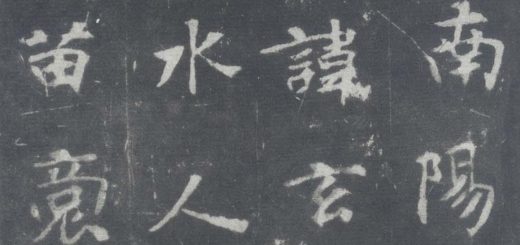 南陽
諱玄
水人
苗裔